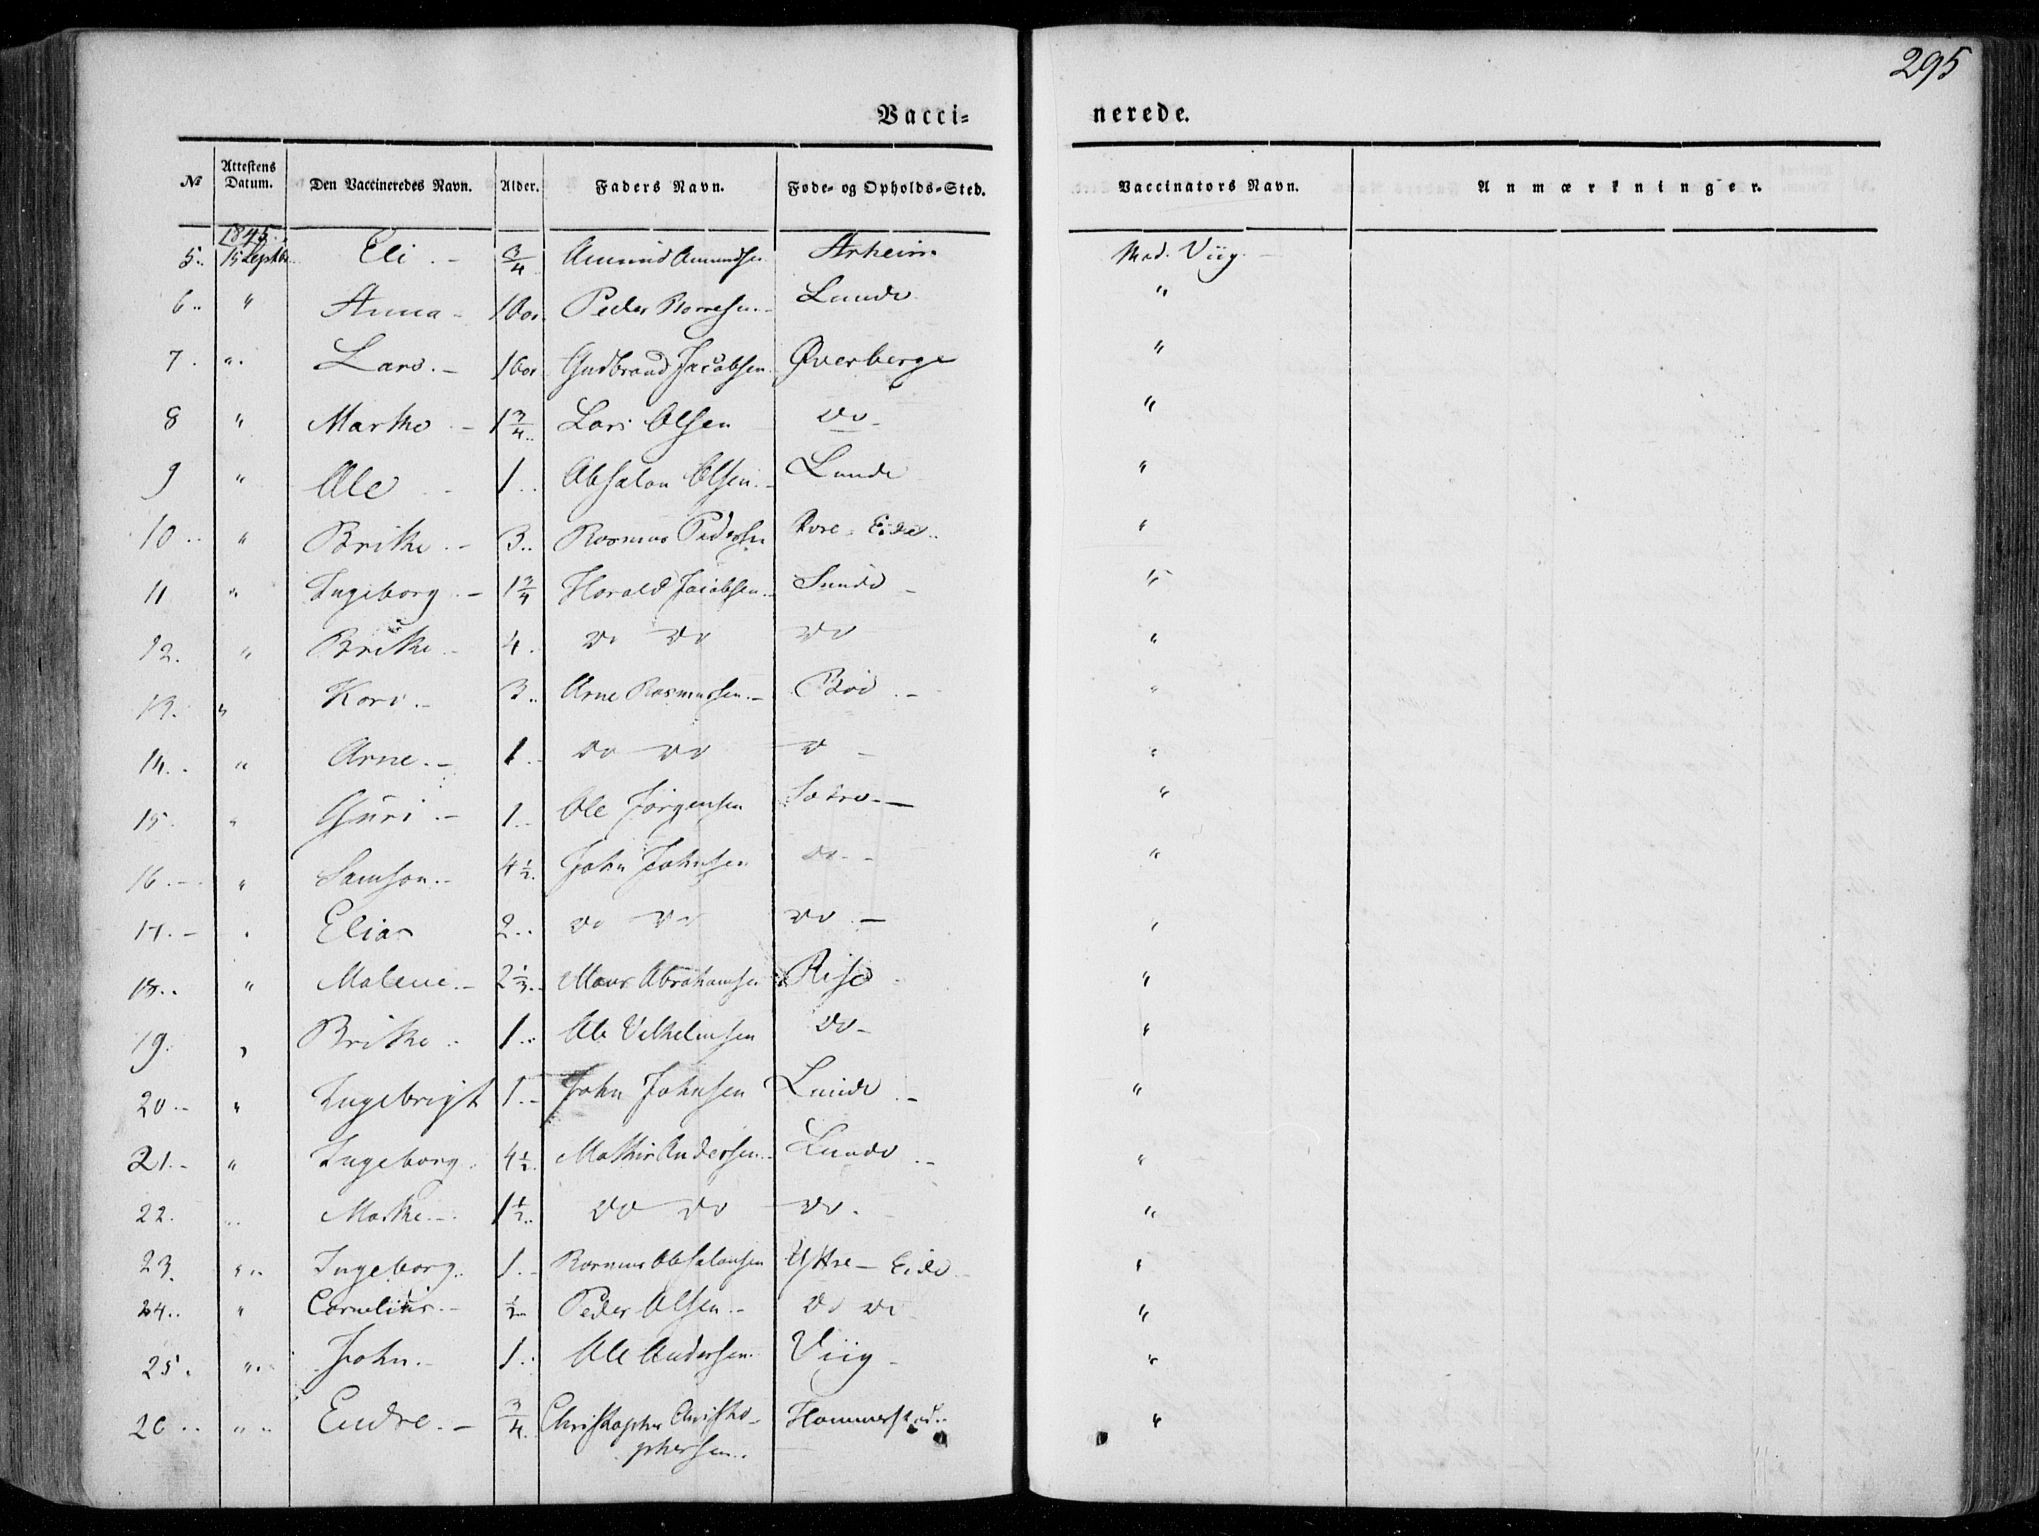 295
Vacci= nerede.
№ Attestens Datum. Den Vaccineredes Navn. Alder. Faders Navn. Føde- og Opholds-Sted. Vaccinators Navn. Anmærkninger.
1845.
5.. 15 Septbr. Eli. - 3/4 Amund Amundsen Arheim Med. Viig. -
6.. " Anna - Peder Lunde "
7. " Lars. - Gudbrand Jacobsen. Øverberge "
8 " Marthe - 1 3/4.. Lars Olsen do - "
9 " Ole - 1.. Absalon Olsen. - Lunde "
10.. " Brithe. - 3.. Rasmus Pedersen Eide.. "
11 " Ingeborg. - 1 3/4 Harald Jacobsen.. Sunde - "
12. " Brithe. - 4. do do do "
13. " Kari. - 3.. Arne Rasmussen. - Böe. - "
14.. " Arne. - 1. - do do d - "
15. " Guri. - 1.. Ole Jörgensen "
16. - " Samson. - 4 1/2. John Johnsen do. - "
17. - " Elias 2.. do do do. - "
18.. " Malene. - 2 1/3. Mons Abrahamsen Rise "
19. " Brithe.. 1.. Ole Vilhelmsen do - "
20.. " Ingebrigt 1. - John Johnsen Lunde. - "
21. - " Ingeborg. 4 1/2. Mathis Andersen. - Lunde. - "
22. " Marthe. - 1 1/2.. do do do. - "
23. " Ingeborg.. 1. - Rasmus Absalonsen Yttre - Eide - "
24.. " Cornelius. - 1/2 Peder Olsen. - do do "
25. " John. - 1.. Ole Andersen. Viig - "
26.. " Endre. - 3/4 Christopher Christo-
phersen.. Hammerstad.. "